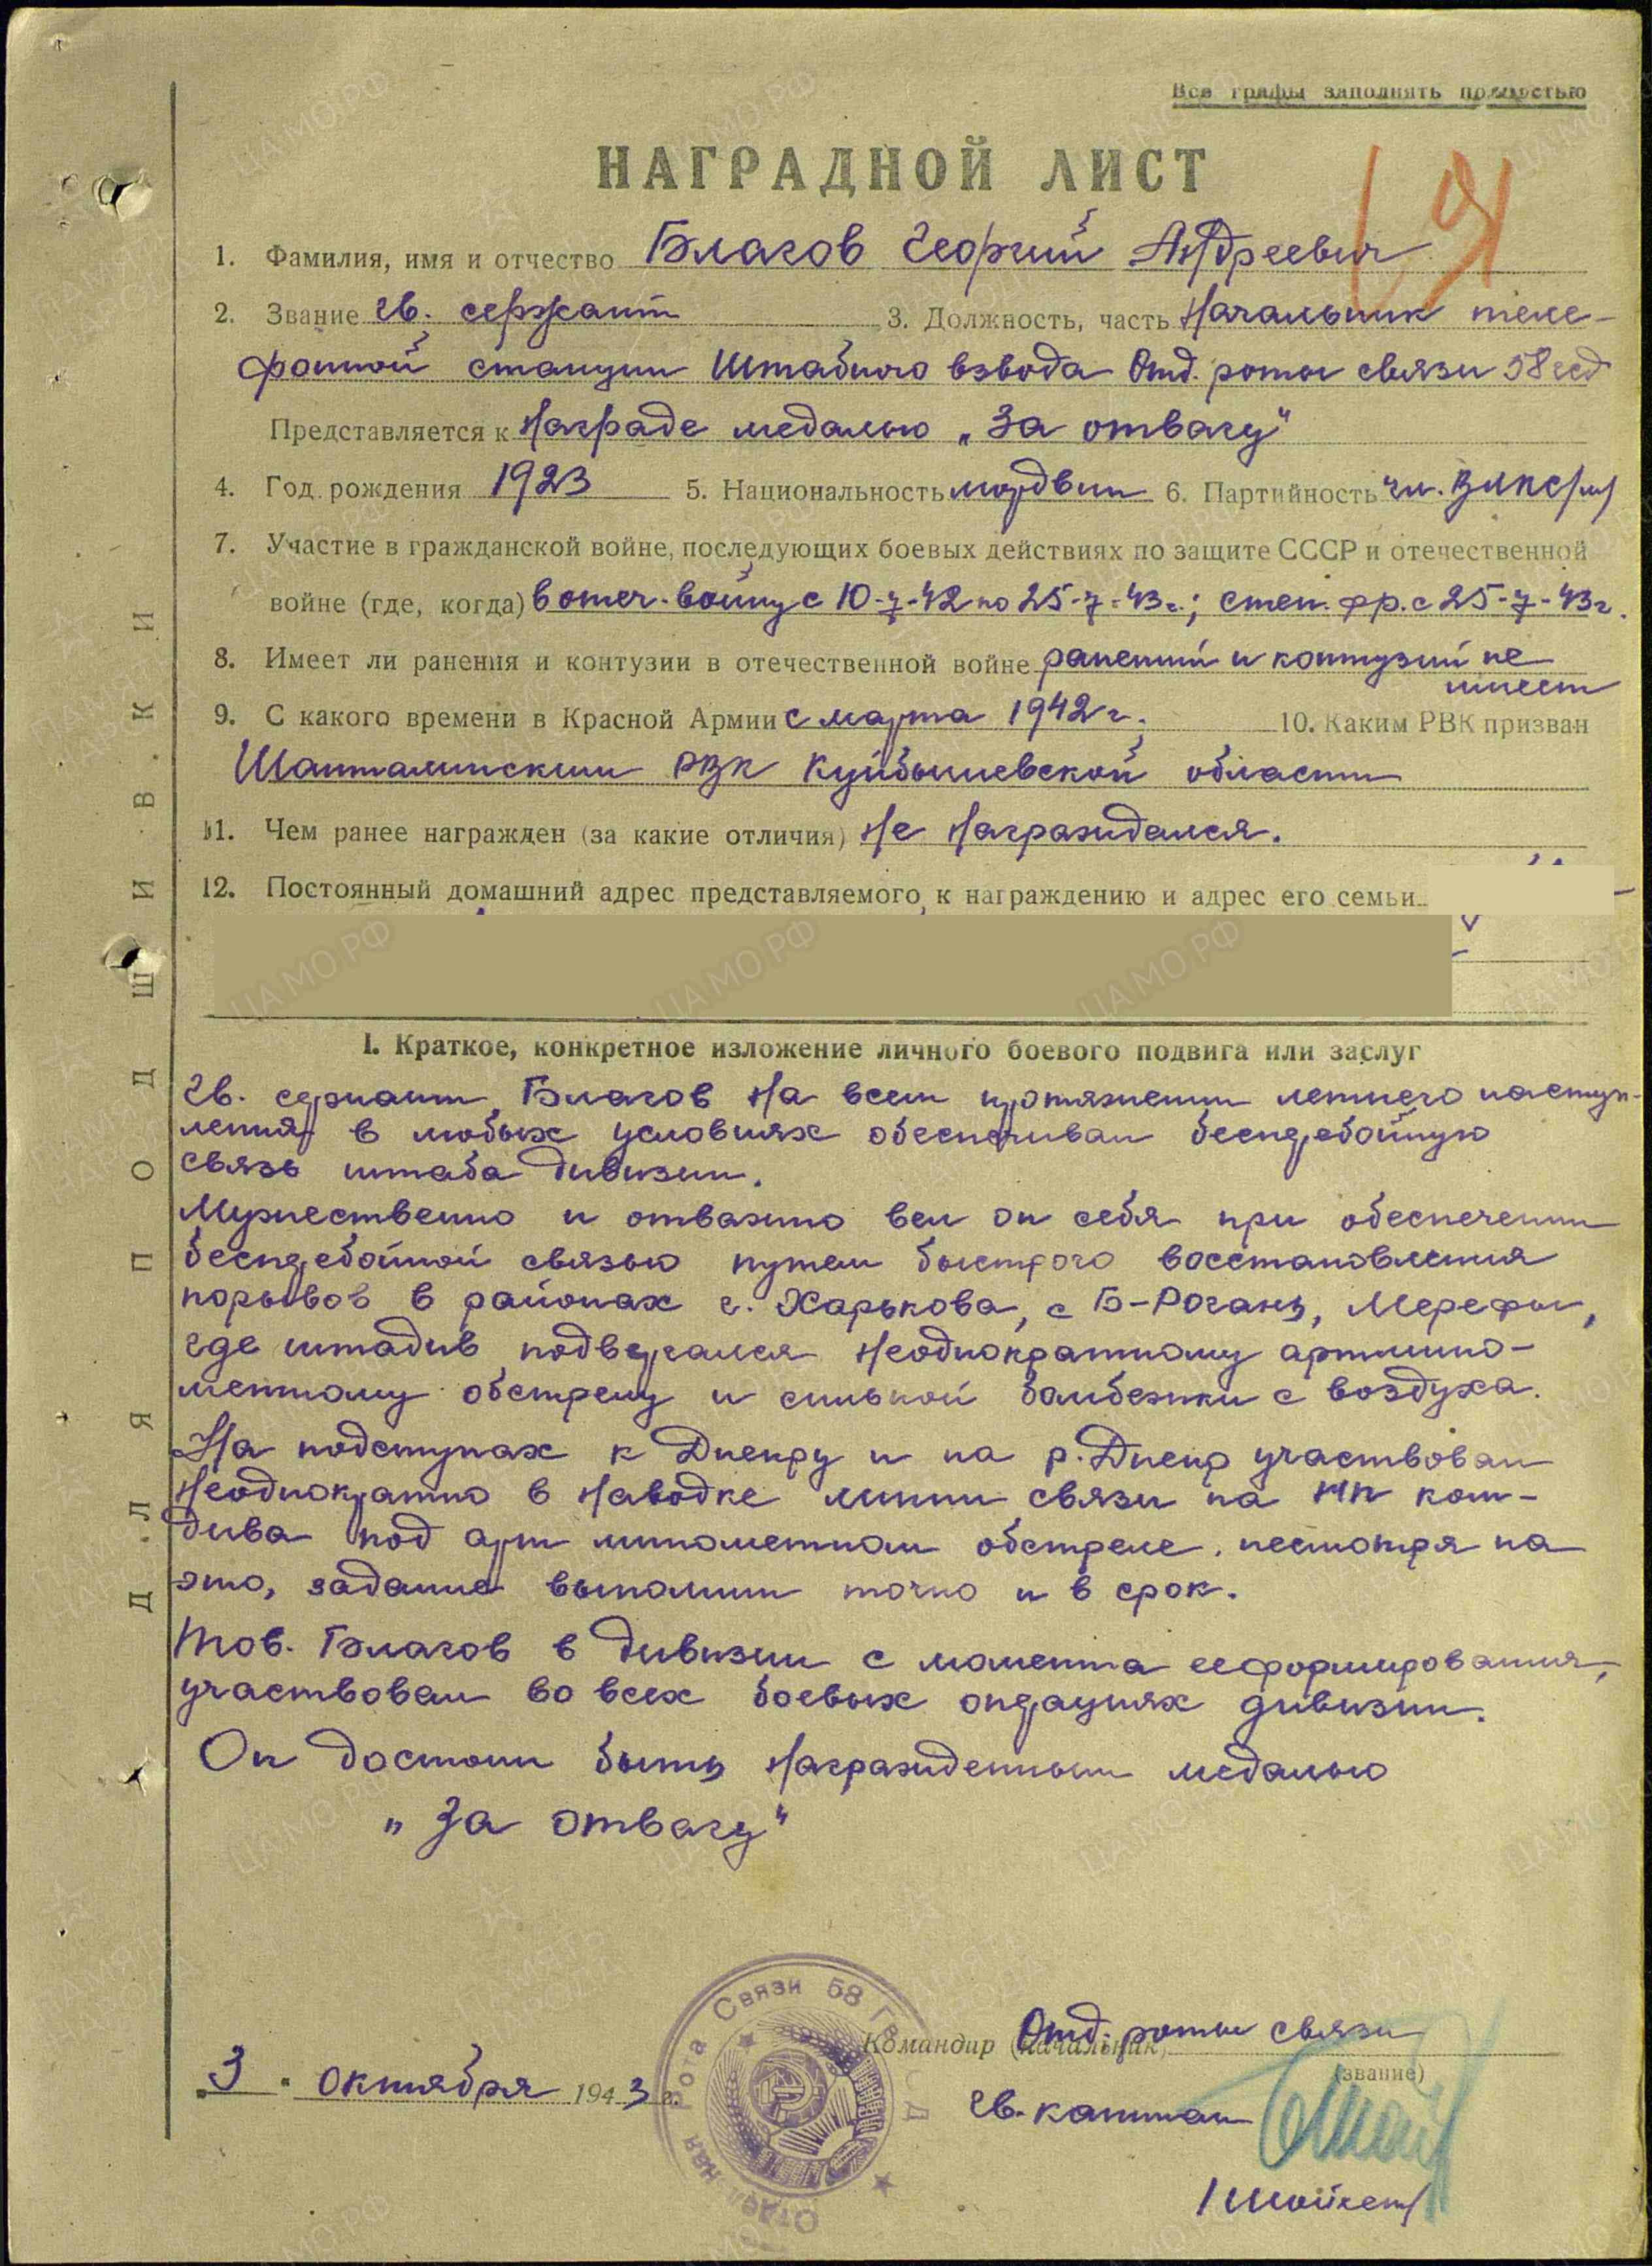 Все графы заполнять полностью
НАГРАДНОЙ ЛИСТ
1. Фамилия, имя и отчество Благов Георгий Андреевич
2. Звание гв. сержант 3. Должность, часть Начальник теле-
фонной станции Штабного взвода Отд. роты связи 58 гсд
Представляется к Награде медалью „За отвагу"
4. Год рождения 1923 5. Национальность мордвин 6. Партийность чл. ВЛКС/м/
7. Участие в гражданской войне, последующих боевых действиях по защите СССР и отечественной
войне (где, когда) в отеч. войну с 10-7-42 по 25-7-43г.; степ. фр. с 25-7-43г.
8. Имеет ли ранения и контузии в отечественной войне ранений и контузий не
имеет
9. С какого времени в Красной Армии с марта 1942 г. 10. Каким РВК призван
Шанталинским РВК Куйбышевской области
11. Чем ранее награжден (за какие отличия) Не Награждался.
12. Постоянный домашний адрес представляемого к награждению и адрес его семьи
I. Краткое, конкретное изложение личного боевого подвига или заслуг
Гв. сержант Благов На всем протяжении летнего наступ-
ления в любых условиях обеспечивал бесперебойную
связь штаба дивизии.
Мужественно и отважно вел он себя при обеспечении
бесперебойной связью путем быстрого восстановления
порывов в районах г. Харькова, с Б-Рогань, Мерефы,
где штадив подвергался Неоднократному артмино-
метному обстрелу и сильной бомбежки с воздуха.
На подступах к Днепру и на р. Днепр участвовал
Неоднократно в Наводке линии связи на НП ком-
дива под арт минометном обстреле, несмотря на
это, задание выполнил точно и в срок.
Тов. Благов в дивизии с момента ее формирования,
участвовал во всех боевых операциях дивизии.
Он достоин быть Награжденным медалью
„За отвагу"
Командир (начальник) Отд. роты связи
(звание)
3 октября 1943 г.
гв. капитан
Отдельная Рота Связи 58 Гв СД
ДЛЯ ПОДШИВКИ
ЦА МО РФ
ПАМЯТЬ НАРОДА